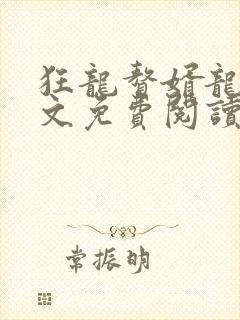 狂龍贅婿龍
文免費閱讀
常振明